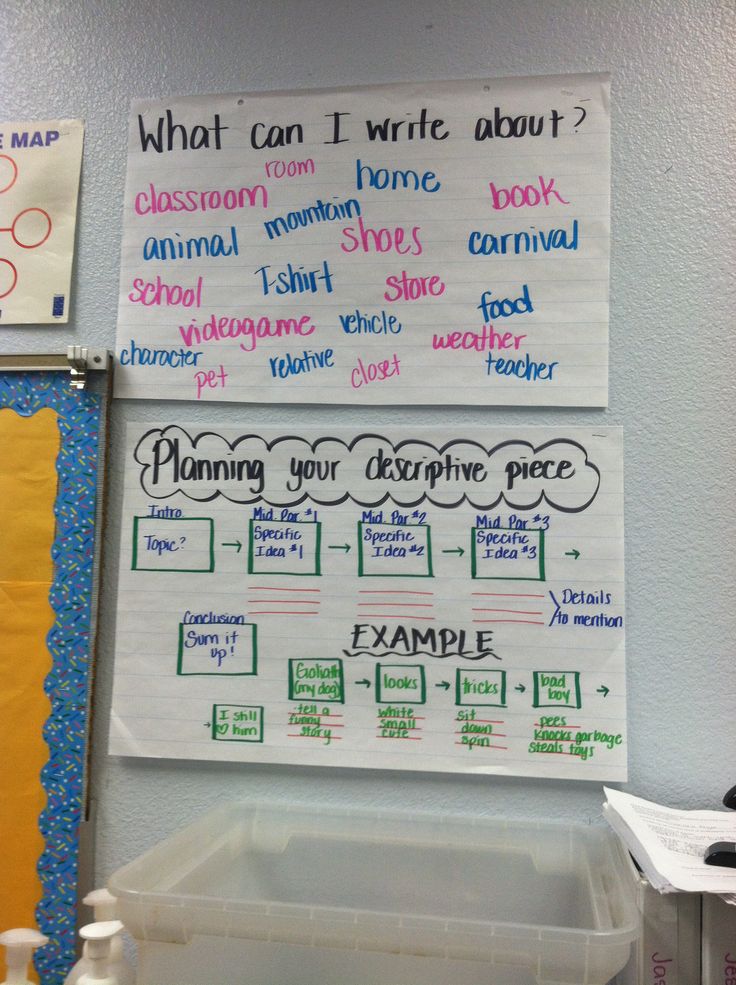 E MAP
What can I write about?
room
home
classroom
book
mountain
animal
shoes
carnival
school
T-shirt
store
food
videogame
vehicle
weather
character
relative
closet
teacher
pet
Planning your descriptive piece
Intro
Mid. Par #1
Mid. Par #2
Mid. Par #3
Topic?
Specific
Idea #1
Specific
Idea #2
Specific
Idea #3
Details
to mention
Conclusion
Sum it
up!
EXAMPLE
Goliath
(my dog)
looks
tricks
bad
boy
tell a
funny
story
white
small
cute
sit
down
spin
pees
knocks garbage
steals toys
I still
♡ him